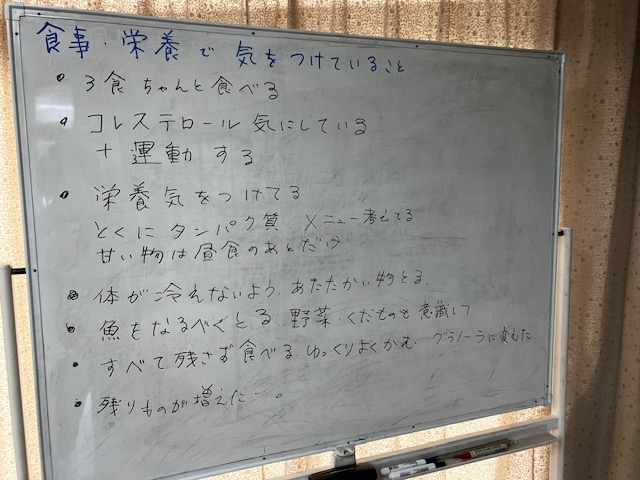 食事・栄養で気をつけていること
• 3食ちゃんと食べる
• コレステロール気にしている
+ 運動する
• 栄養気をつけてる
とくにタンパク質 メニュー考えてる
甘い物は昼食のあとだけ
• 体が冷えないよう、あたたかい物とる、
• 魚をなるべくとる、野菜・くだものも意識して
• すべて残さず食べる、ゆっくりよくかむ、グラノーラに変えた
• 残りものが増えた…。